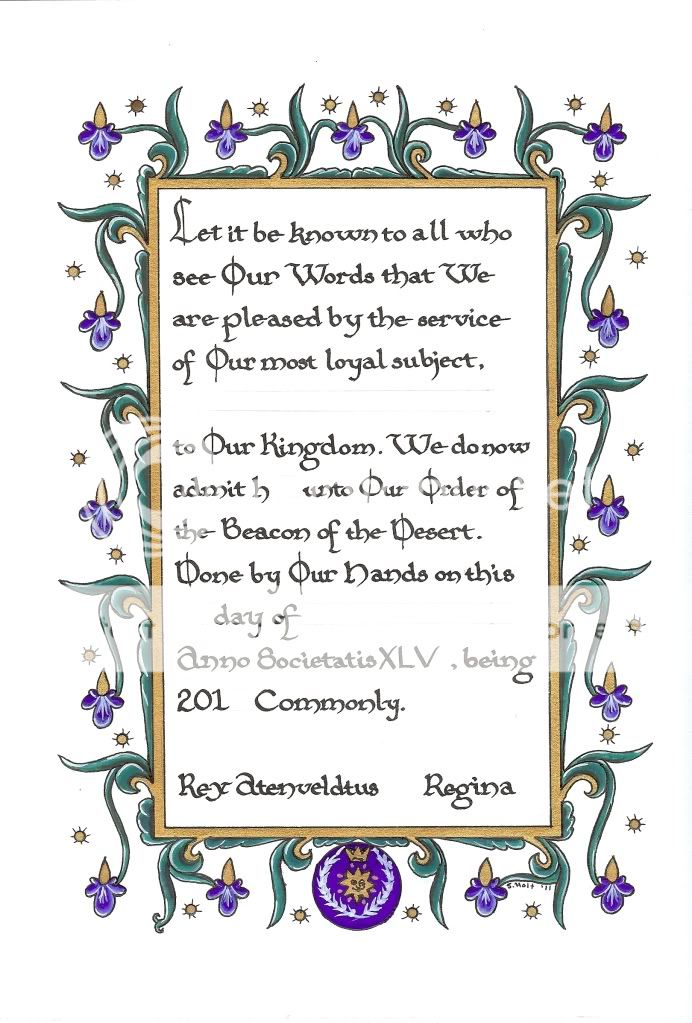 Let it be known to all who
see Our Words that We
are pleased by the service
of Our most loyal subject,
to Our Kingdom. We do now
admit h unto Our Order of
the Beacon of the Desert.
Done by Our Hands on this
day of
Anno Societatis XLV , being
201 Commonly.
Rex Atenveldtus Regina
S. Holt '11